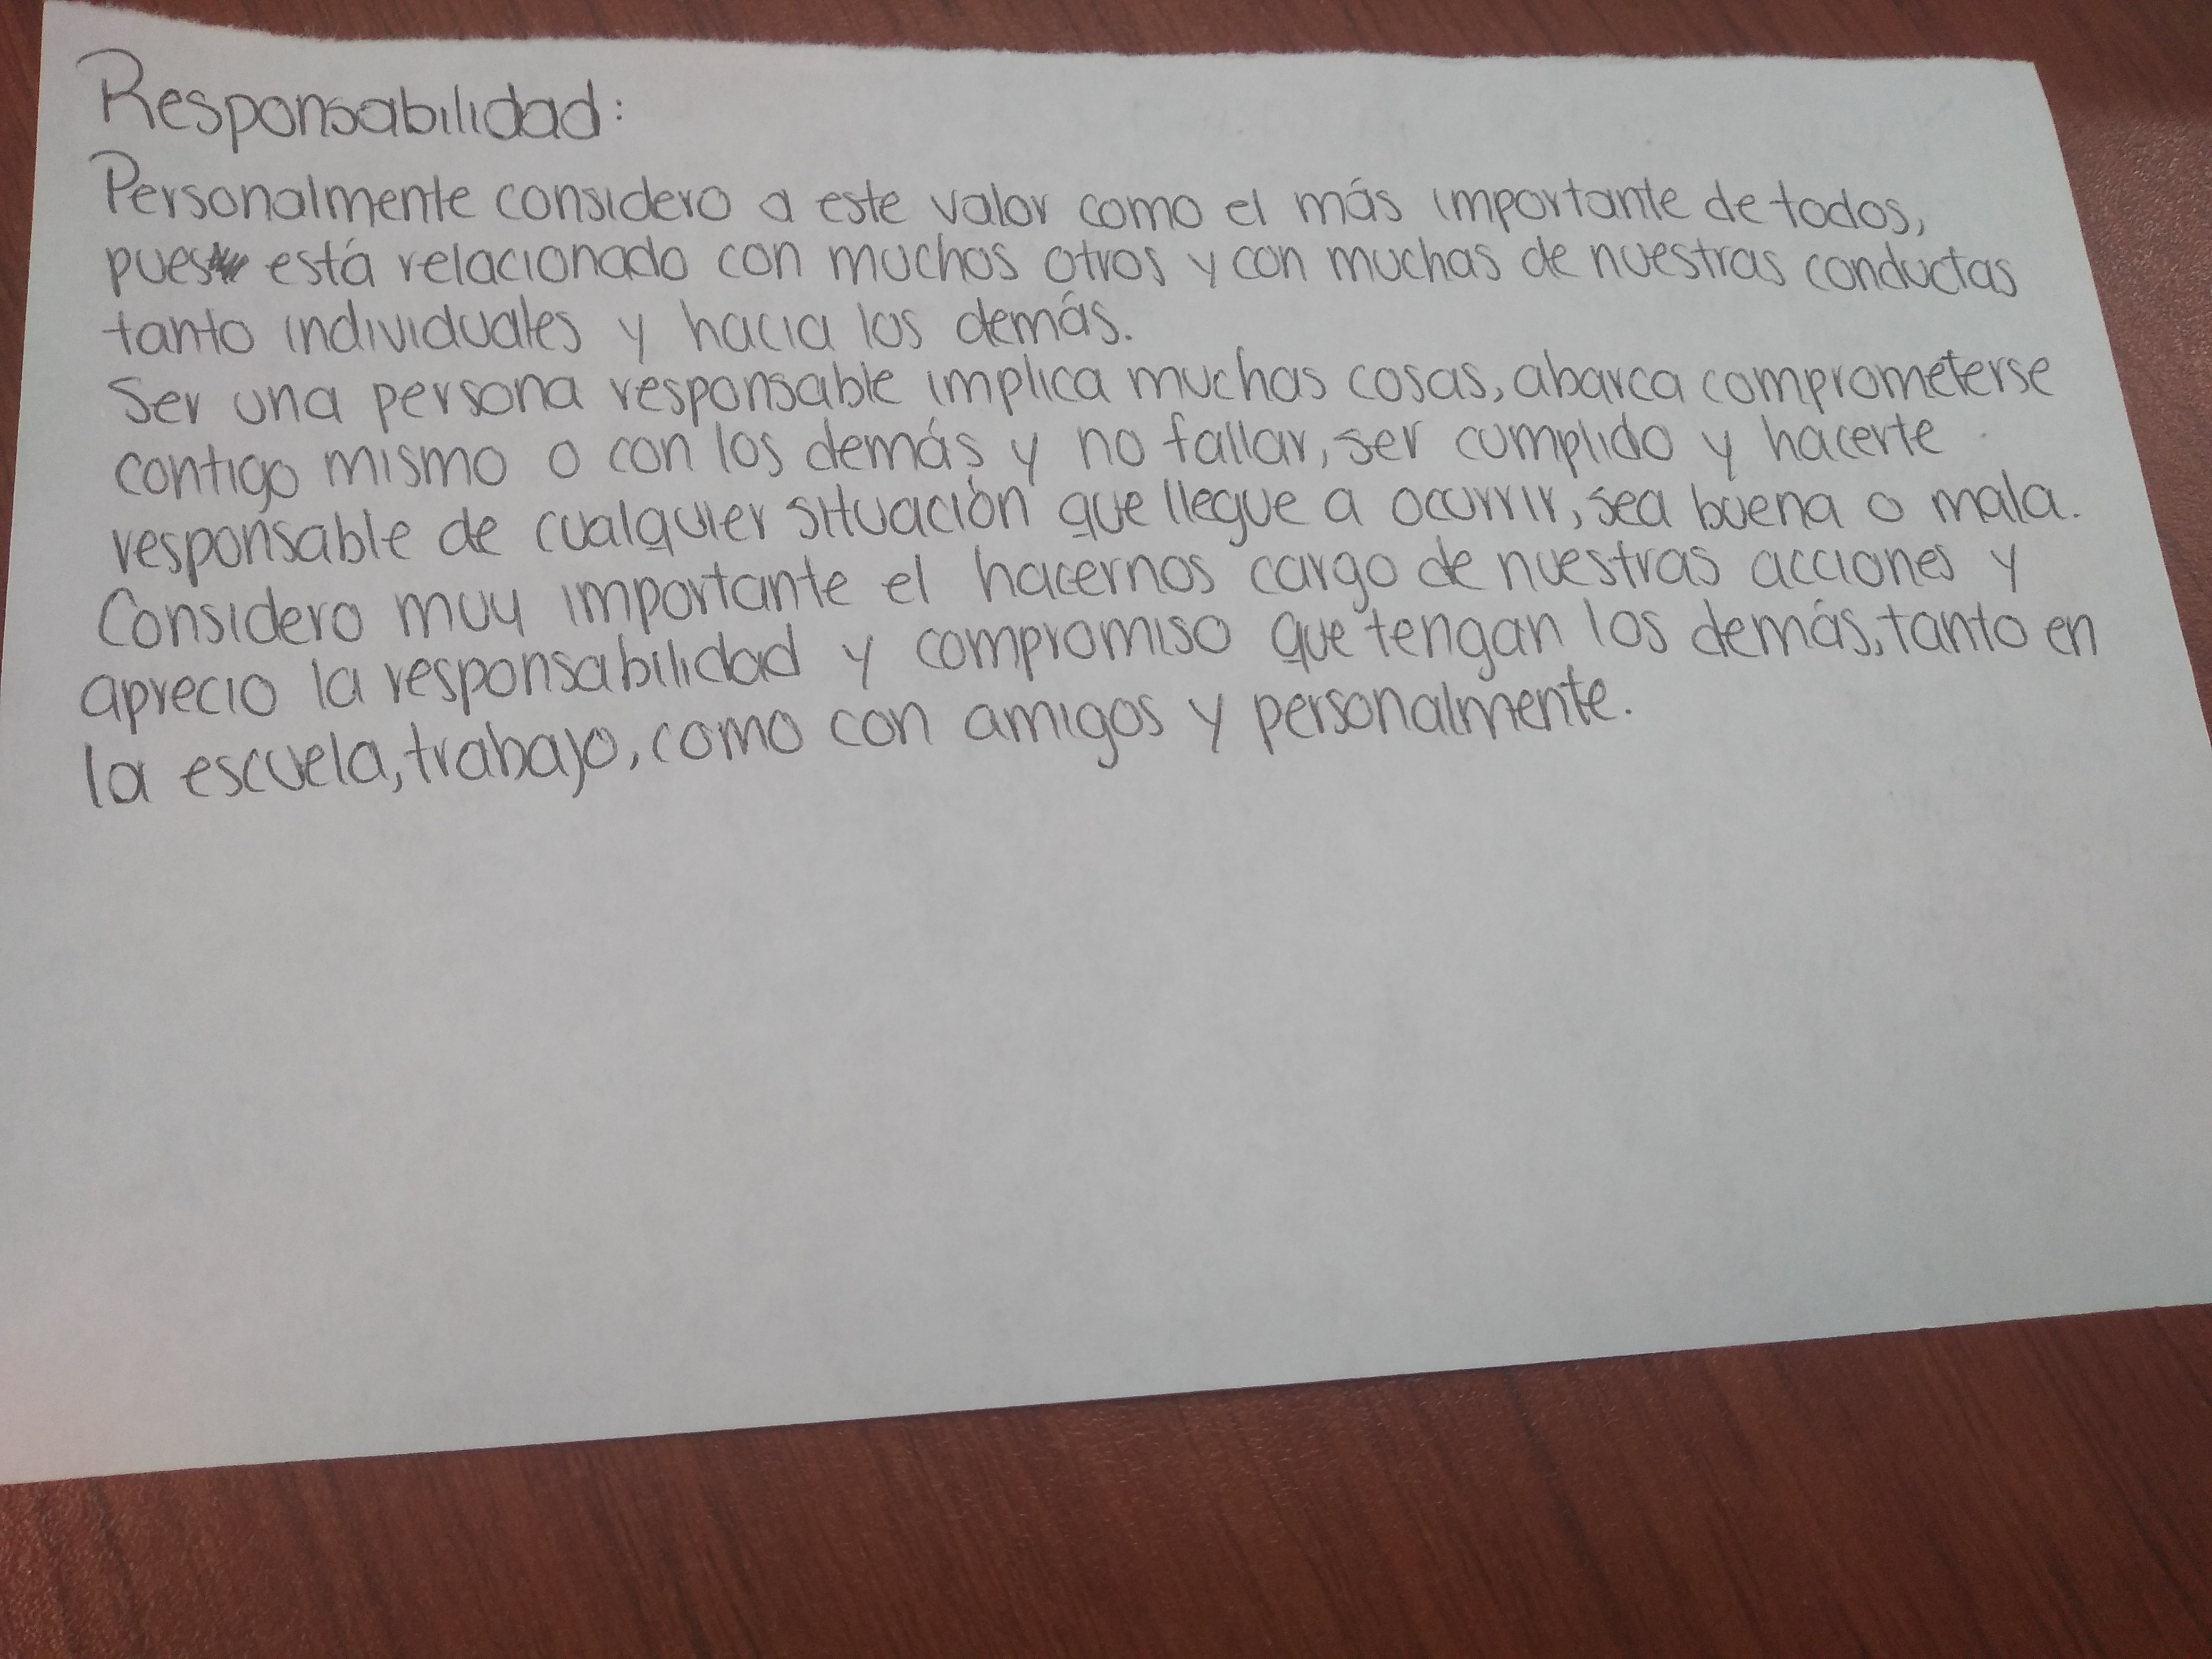 Responsabilidad:
Personalmente considero a este valor como el más importante de todos,
pues está relacionado con muchos otros y con muchas de nuestras conductas
tanto individuales y hacia los demás.
Ser una persona responsable implica muchas cosas, abarca comprometerse
contigo mismo o con los demás y no fallar, ser cumplido y hacerte
responsable de cualquier situación que llegue a ocurrir, sea buena o mala.
Considero muy importante el hacernos cargo de nuestras acciones y
aprecio la responsabilidad y compromiso que tengan los demás, tanto en
la escuela, trabajo, como con amigos y personalmente.